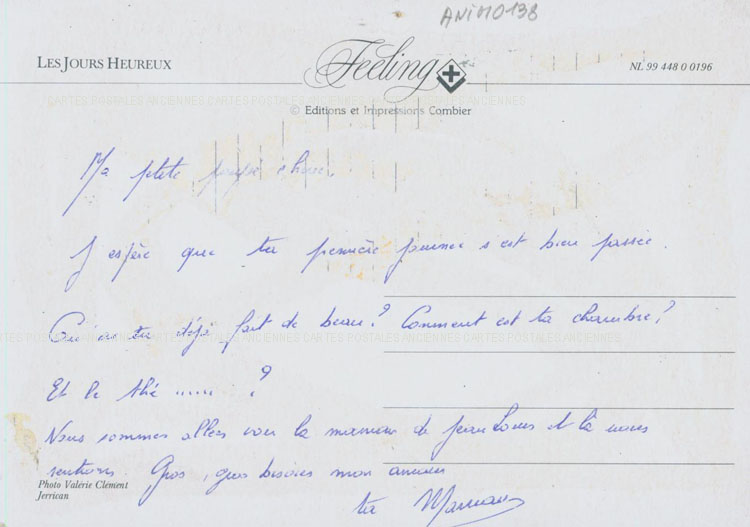 ANIM0138
LES JOURS HEUREUX
Feeling
NL 99 448 0 0196
CARTES POSTALES ANCIENNES CARTES POSTALES ANCIENNES
© Editions et Impressions Combier
Ma ptite chérie.
J espère que ta première journée s'est bien passée.
Qu'as tu déjà fait de beau? Comment est ta chambre?
CARTES POSTALES ANCIENNES CARTES POSTALES ANCIENNES CARTES POSTALES ANCIENNES
Et le thé ...... ?
Nous sommes allés voir la maman de Jean Louis et là nous
rentrons. Gros, gros bisous mon amour
Photo Valérie Clément
Jerrican
ta Maman